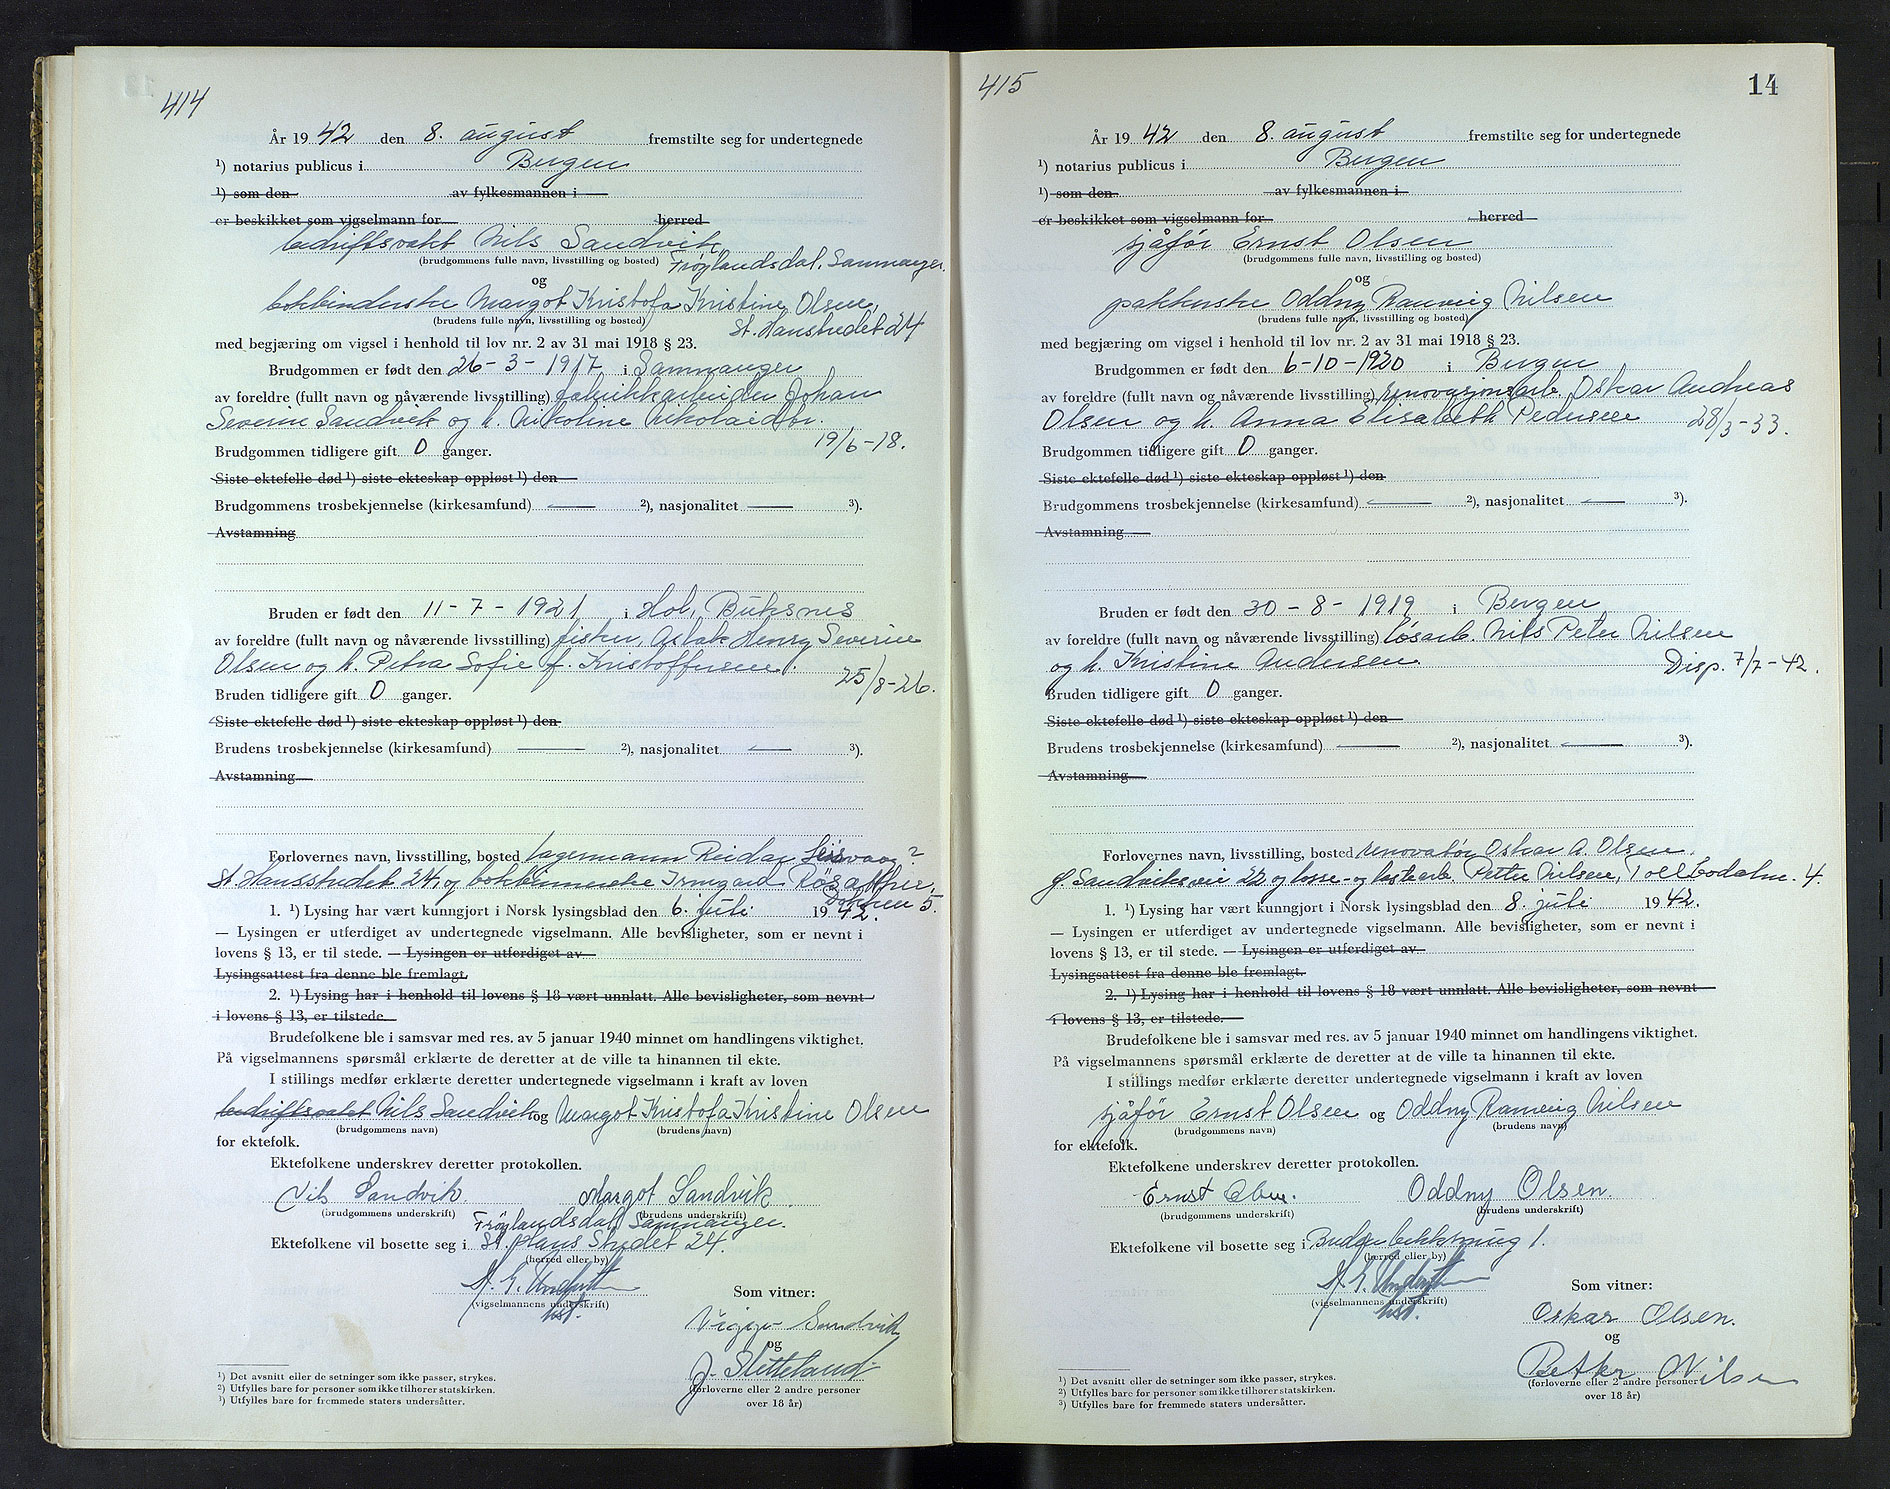 414
År 1942 den 8. august fremstilte seg for undertegnede
¹) notarius publicus i Bergen
¹) som den av fylkesmannen i
er beskikket som vigselmann for herred
bedriftsvakt Nils Sandvik
(brudgommens fulle navn, livsstilling og bosted) Frøylandsdal, Samnanger.
og
bokbinderske Margot Kristofa Kristine Olsen,
(brudens fulle navn, livsstilling og bosted) St. Hansstredet 24
med begjæring om vigsel i henhold til lov nr. 2 av 31 mai 1918 § 23.
Brudgommen er født den 26-3-1917 i Samnanger
av foreldre (fullt navn og nåværende livsstilling) fabrikkarbeider Johan
Severin Sandvik og h. Nikoline Nikolaidtr.
19/6-18.
Brudgommen tidligere gift 0 ganger.
Siste ektefelle død ¹) siste ekteskap oppløst ¹) den
Brudgommens trosbekjennelse (kirkesamfund) — ²), nasjonalitet — ³).
Avstamning
Bruden er født den 11-7-1921 i Hol, Buksnes
av foreldre (fullt navn og nåværende livsstilling) fisker, Aslak Henry Severin
Olsen og h. Petra Sofie f. Kristoffersen.
25/8-26.
Bruden tidligere gift 0 ganger.
Siste ektefelle død ¹) siste ekteskap oppløst ¹) den
Brudens trosbekjennelse (kirkesamfund) — ²), nasjonalitet — ³).
Avstamning
Forlovernes navn, livsstilling, bosted lagermann Reidar
St. Hansstredet 24 og Irmgard
5.
1. ¹) Lysing har vært kunngjort i Norsk lysingsblad den 6. juli 1942.
— Lysingen er utferdiget av undertegnede vigselmann. Alle bevisligheter, som er nevnt i
lovens § 13, er til stede. — Lysingen er utferdiget av
Lysingsattest fra denne ble fremlagt.
2. ¹) Lysing har i henhold til lovens § 18 vært unnlatt. Alle bevisligheter, som nevnt
i lovens § 13, er tilstede.
Brudefolkene ble i samsvar med res. av 5 januar 1940 minnet om handlingens viktighet.
På vigselmannens spørsmål erklærte de deretter at de ville ta hinannen til ekte.
I stillings medfør erklærte deretter undertegnede vigselmann i kraft av loven
bedriftsvakt Nils Sandvik og Margot Kristofa Kristine Olsen
(brudgommens navn) (brudens navn)
for ektefolk.
Ektefolkene underskrev deretter protokollen.
Nils Sandvik. Margot Sandvik.
(brudgommens underskrift) (brudens underskrift)
Frøylandsdal, Samnanger.
Ektefolkene vil bosette seg i St. Hans Stredet 24.
(herred eller by)
(vigselmannens underskrift)
Som vitner:
Sandvik
og
J. Sletteland
(forloverne eller 2 andre personer
over 18 år)
¹) Det avsnitt eller de setninger som ikke passer, strykes.
²) Utfylles bare for personer som ikke tilhører statskirken.
³) Utfylles bare for fremmede staters undersåtter.
415
14
År 1942 den 8. august fremstilte seg for undertegnede
¹) notarius publicus i Bergen
¹) som den av fylkesmannen i
er beskikket som vigselmann for herred
sjåfør Ernst Olsen
(brudgommens fulle navn, livsstilling og bosted)
og
pakkerske Oddny Ranveig Nilsen
(brudens fulle navn, livsstilling og bosted)
med begjæring om vigsel i henhold til lov nr. 2 av 31 mai 1918 § 23.
Brudgommen er født den 6-10-1920 i Bergen
av foreldre (fullt navn og nåværende livsstilling) renovasjonsarb. Oskar Andreas
Olsen og h. Anna Elisabeth Pedersen
28/3-33.
Brudgommen tidligere gift 0 ganger.
Siste ektefelle død ¹) siste ekteskap oppløst ¹) den
Brudgommens trosbekjennelse (kirkesamfund) — ²), nasjonalitet — ³).
Avstamning
Bruden er født den 30-8-1919 i Bergen
av foreldre (fullt navn og nåværende livsstilling) løsarb. Nils Peter Nilsen
og h. Kristine Andersen.
Disp. 7/7-42.
Bruden tidligere gift 0 ganger.
Siste ektefelle død ¹) siste ekteskap oppløst ¹) den
Brudens trosbekjennelse (kirkesamfund) — ²), nasjonalitet — ³).
Avstamning
Forlovernes navn, livsstilling, bosted renovatør Oskar A. Olsen,
Sandviksvei 22 og losse- og lastearb. Petter Nilsen, Tollbodalm. 4.
1. ¹) Lysing har vært kunngjort i Norsk lysingsblad den 8. juli 1942.
— Lysingen er utferdiget av undertegnede vigselmann. Alle bevisligheter, som er nevnt i
lovens § 13, er til stede. — Lysingen er utferdiget av
Lysingsattest fra denne ble fremlagt.
2. ¹) Lysing har i henhold til lovens § 18 vært unnlatt. Alle bevisligheter, som nevnt
i lovens § 13, er tilstede.
Brudefolkene ble i samsvar med res. av 5 januar 1940 minnet om handlingens viktighet.
På vigselmannens spørsmål erklærte de deretter at de ville ta hinannen til ekte.
I stillings medfør erklærte deretter undertegnede vigselmann i kraft av loven
sjåfør Ernst Olsen og Oddny Ranveig Nilsen
(brudgommens navn) (brudens navn)
for ektefolk.
Ektefolkene underskrev deretter protokollen.
Ernst Olsen. Oddny Olsen.
(brudgommens underskrift) (brudens underskrift)
Ektefolkene vil bosette seg i 1.
(herred eller by)
(vigselmannens underskrift)
Som vitner:
Oskar Olsen.
og
Petter Nilsen
(forloverne eller 2 andre personer
over 18 år)
¹) Det avsnitt eller de setninger som ikke passer, strykes.
²) Utfylles bare for personer som ikke tilhører statskirken.
³) Utfylles bare for fremmede staters undersåtter.